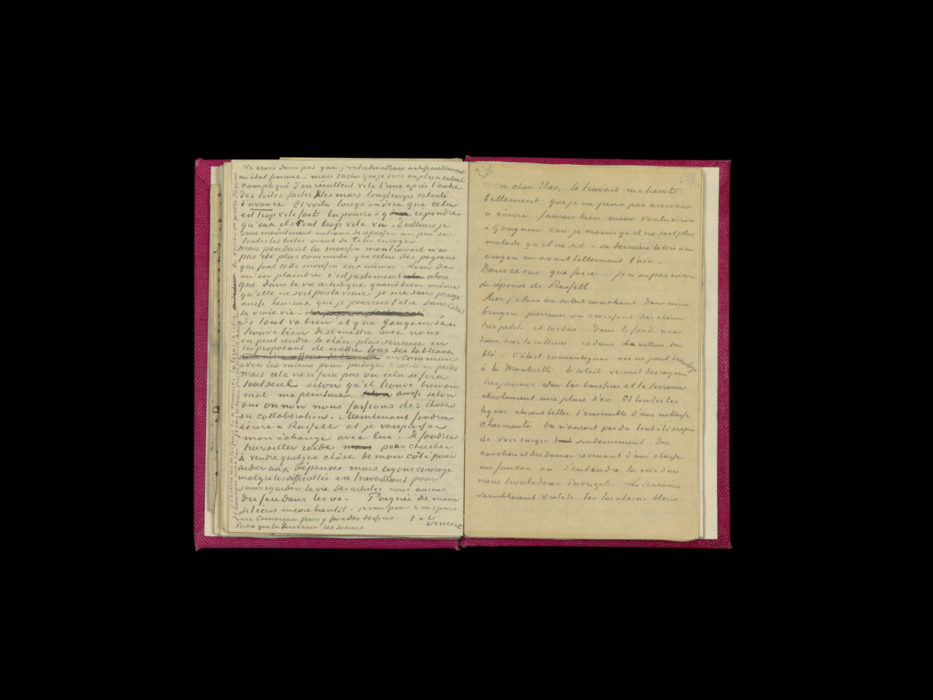 Ne crois donc pas que j'entretiendrais artificiellement
un état fievreux – mais sache que je suis en plein calcul
compliqué d'ou résultent vite l'une après l'autre
des toiles faites vites mais longtemps calculé
d'avance. Et voila lorsqu'on dira que cela
est trop vite fait tu pourras y repondre
qu'eux ils ont trop vite vu. D'ailleurs je
suis maintenant entrain de repasser un peu sur
toutes les toiles avant de te les envoyer.
Mais pendant la moisson mon travail n'a
pas été plus commode que celui des paysans
qui font cette moisson eux mêmes. Loin de
m'en plaindre c'est justement alors
que dans la vie artistique quand bien même
qu'elle ne soit pas la vraie je me sens presq.
aussi heureux que je pourrais l'être dans l'ideal
la vraie vie –
Si tout va bien et que Gauguin s'en
trouve bien de se mettre avec nous
on peut rendre la chose plus serieuse en
lui proposant de mettre tous ses tableaux
en commun
avec les miens pour partager pertes
Mais cela ne se fera pas ou cela se fera
tout seul selon qu'il trouve bien ou
mal ma peinture aussi selon
que ou non nous fassions des choses
en collaboration. Maintenant faudra
écrire à Russell et je vais presser
mon échange avec lui. Il faudra
travailler raide pour chercher
à vendre quelque chôse de mon côté pour
aider aux dépenses mais ayons courage
malgré les difficultés en travaillant pour
sauvegarder la vie des artistes nous aurons
du feu dans les os. Poignée de main
je t'écris encore bientot. je vais pour 2 ou 3 jours
en Camargue pour y faire des dessins. t. à t.
Bien que tu fasses venir les soeurs. Vincent
mon cher Theo, le travail me tient
tellement que je ne peux pas arriver
à écrire. J'aurais bien encore voulu écrire
à Gauguin car je crains qu'il ne soit plus
malade qu'il ne dit – sa derniere lettre au
crayon en avait tellement l'air.
Dans ce cas que faire – je n'ai pas encore
de réponse de Russell.
Hier j'étais au soleil couchant dans une
bruyère pierreuse ou croissent des chênes
très petits et tordus. Dans le fond une
ruine sur la colline et dans le vallon du
blé. C'était romantique on ne peut davantage
à la Monticelli le soleil versait des rayons
très jaunes sur les buissons et le terrain
absolument une pluie d'or. Et toutes les
lignes etaient belles. l'ensemble d'une noblesse
charmante. On n'aurait pas du tout été surpris
de voir surgir soudainement des
cavaliers et des dames revenant d'une chasse
au faucon ou d'entendre la voix d'un
vieux troubadour provençal. Les terrains
semblaient violets les lointains bleus.